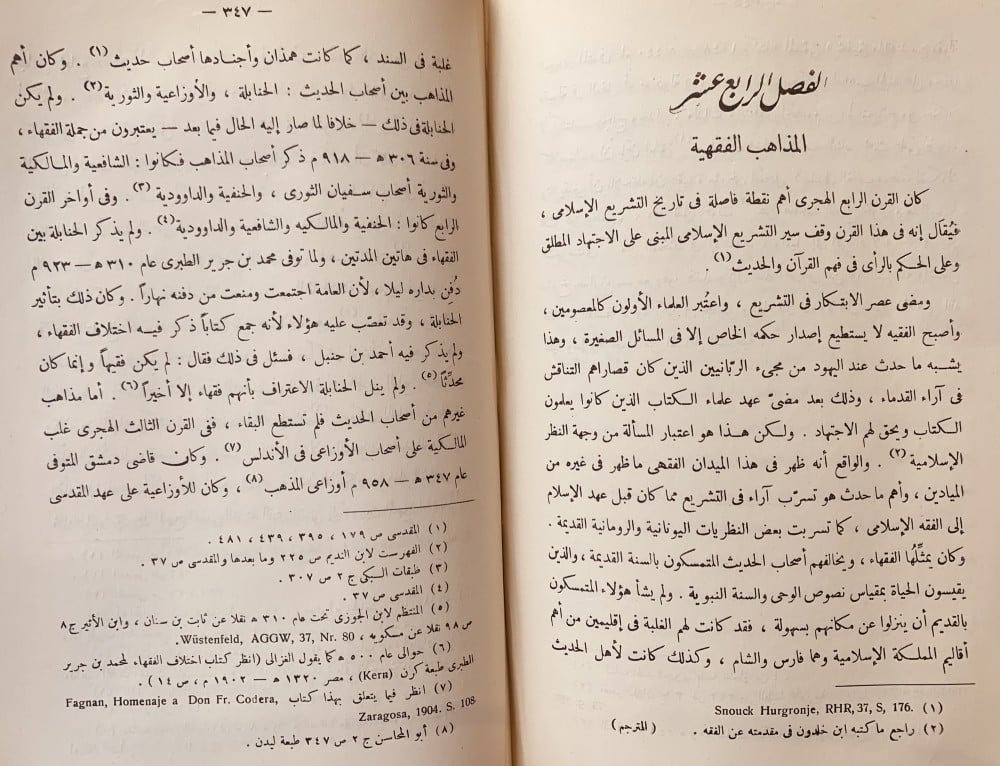 الفصل الرابع عشر
المذاهب الفقهية
كان القرن الرابع الهجرى أهم نقطة فاصلة فى تاريخ التشريع الإسلامى ،
فيُقَال إنه فى هذا القرن وقف سير التشريع الإسلامى المبنى على الاجتهاد المطلق
وعلى الحكم بالرأى فى فهم القرآن والحديث(١) .
ومضى عصر الابتكار فى التشريع ، واعتُبر العلماء الأولون كالمعصومين ،
وأصبح الفقيه لا يستطيع إصدار حكمه الخاص إلا فى المسائل الصغيرة ، وهذا
يشبه ما حدث عند اليهود من مجىء الربّانيين الذين كان قصاراهم التناقش
فى آراء القدماء ، وذلك بعد مضىّ عهد علماء الكتاب الذين كانوا يعلمون
الكتاب ويحق لهم الاجتهاد . ولكن هذا هو اعتبار المسألة من وجهة النظر
الإسلامية(٢) . والواقع أنه ظهر فى هذا الميدان الفقهى ما ظهر فى غيره من
الميادين ، وأهم ما حدث هو تسرّب آراء فى التشريع مما كان قبل عهد الإسلام
إلى الفقه الإسلامى ، كما تسربت بعض النظريات اليونانية والرومانية القديمة .
وكان يمثِّلُها الفقهاء ، ويخالفهم أصحاب الحديث المتمسكون بالسنة القديمة ، والذين
يقيسون الحياة بمقياس نصوص الوحى والسنة النبوية . ولم يشأ هؤلاء المتمسكون
بالقديم أن ينزلوا عن مكانهم بسهولة ، فقد كانت لهم الغلبة فى إقليمين من أهم
أقاليم المملكة الإسلامية وهما فارس والشام ، وكذلك كانت لأهل الحديث
(١) Snouck Hurgronje, RHR, 37, S, 176.
(٢) راجع ما كتبه ابن خلدون فى مقدمته عن الفقه . (المترجم)
— ٣٤٧ —
غلبة فى السند ، كما كانت همذان وأجنادها أصحاب حديث(١) . وكان أهم
المذاهب بين أصحاب الحديث : الحنابلة ، والأوزاعية والثورية(٢) . ولم يكن
الحنابلة فى ذلك — خلافا لما صار إليه الحال فيما بعد — يعتبرون من جملة الفقهاء ،
وفى سنة ٣٠٦ هـ — ٩١٨ م ذكر أصحاب المذاهب فكانوا : الشافعية والمالكية
والثورية أصحاب سفيان الثورى ، والحنفية والداوودية(٣) . وفى أواخر القرن
الرابع كانوا : الحنفية والمالكيه والشافعية والداوودية(٤) . ولم يذكر الحنابلة بين
الفقهاء فى هاتين المدتين ، ولما توفى محمد بن جرير الطبرى عام ٣١٠ هـ — ٩٢٣ م
دُفِن بداره ليلا ، لأن العامة اجتمعت ومنعت من دفنه نهاراً . وكان ذلك بتأثير
الحنابلة ، وقد تعصّب عليه هؤلاء لأنه جمع كتاباً ذكر فيه اختلاف الفقهاء ،
ولم يذكر فيه أحمد بن حنبل ، فسئل فى ذلك فقال : لم يكن فقيهاً وإنما كان
محدِّثاً(٥) . ولم ينل الحنابلة الاعتراف بأنهم فقهاء إلا أخيراً(٦) . أما مذاهب
غيرهم من أصحاب الحديث فلم تستطع البقاء ، ففى القرن الثالث الهجرى غلب
المالكية على أصحاب الأوزاعى فى الأندلس(٧) . وكان قاضى دمشق المتوفى
عام ٣٤٧ هـ — ٩٥٨ م أوزاعى المذهب(٨) ، وكان للأوزاعية على عهد المقدسى
(١) المقدسى ص ١٧٩ ، ٣٩٥ ، ٤٣٩ ، ٤٨١ .
(٢) الفهرست لابن النديم ص ٢٢٥ وما بعدها والمقدسى ص ٣٧ .
(٣) طبقات السبكى ج ٢ ص ٣٠٧ .
(٤) المقدسى ص ٣٧ .
(٥) المنتظم لابن الجوزى تحت عام ٣١٠ هـ نقلا عن ثابت بن سنان ، وابن الأثير ج ٨
ص ٩٨ نقلا عن مسكويه ، Wüstenfeld, AGGW, 37, Nr. 80.
(٦) حوالى عام ٥٠٠ هـ كما يقول الغزالى (انظر كتاب اختلاف الفقهاء لمحمد بن جرير
الطبرى طبعة كرن (Kern) ، مصر ١٣٢٠ هـ — ١٩٠٢ م ، ص ١٤) .
(٧) انظر فيما يتعلق بهذا كتاب Fagnan, Homenaje a Don Fr. Codera,
Zaragosa, 1904. S. 108
(٨) أبو المحاسن ج ٢ ص ٣٤٧ طبعة ليدن .